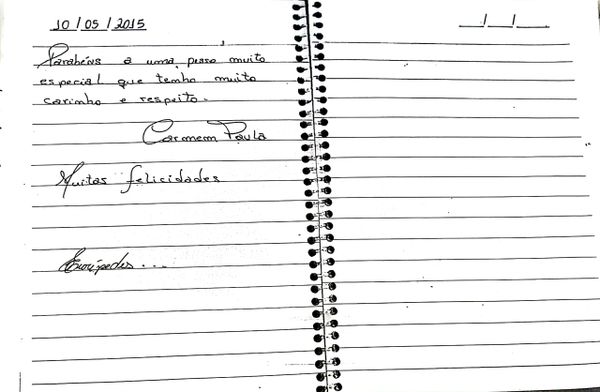 10/05/2015
Parabéns a uma pessoa muito
especial que tenho muito
carinho e respeito.
Carmem Paula
Muitas felicidades
Eurípedes...